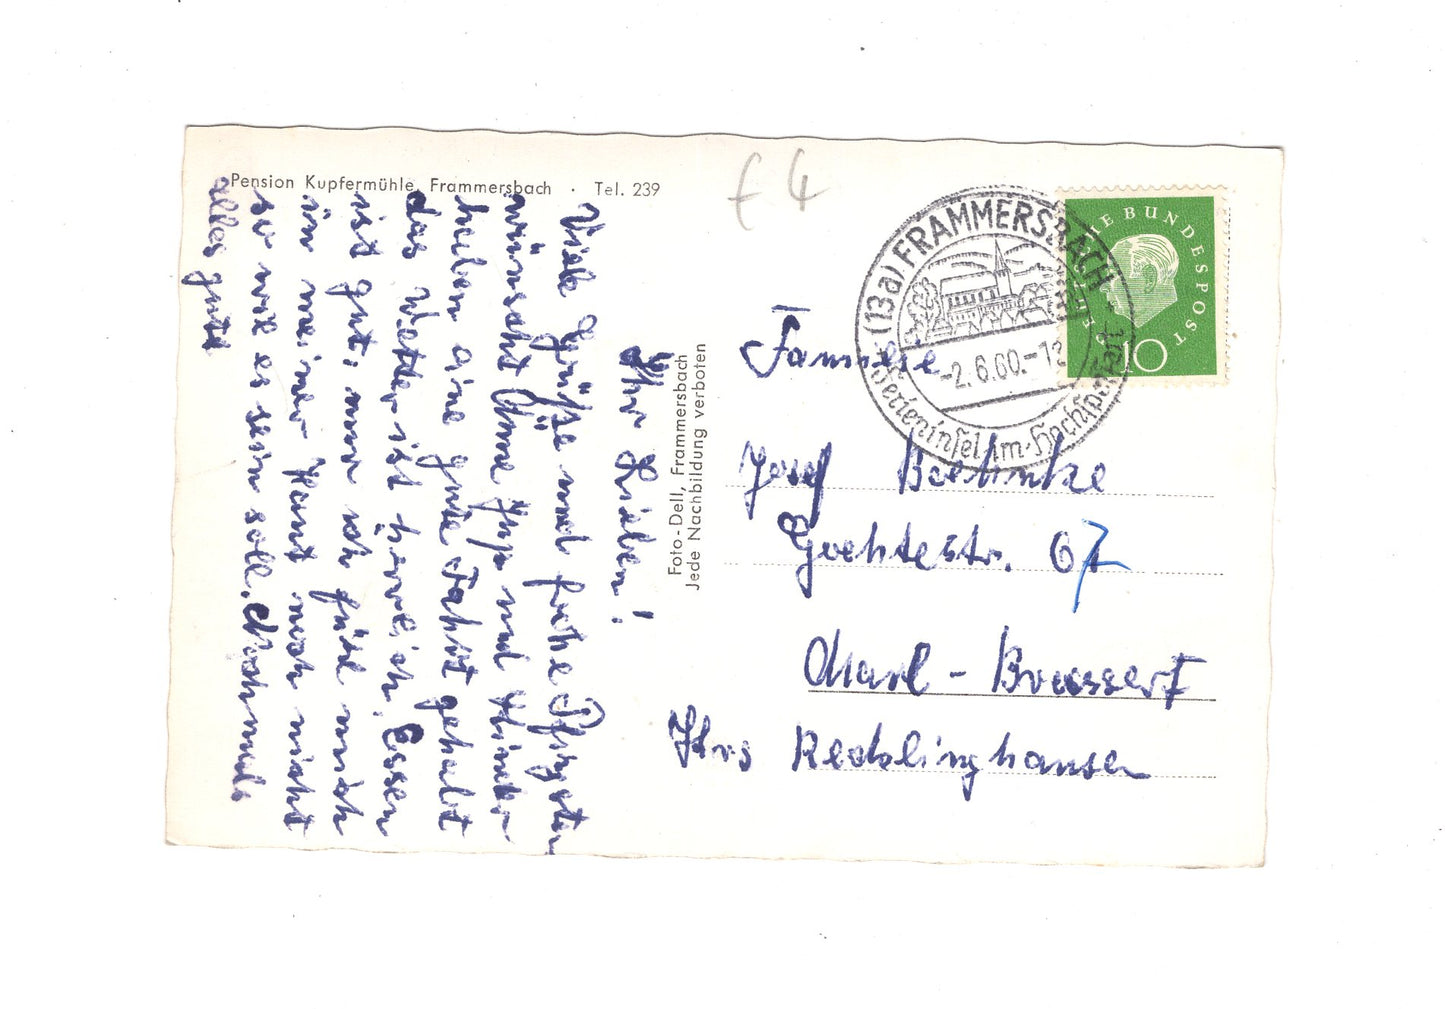 Pension Kupfermühle, Frammersbach · Tel. 239
£ 4
Ihr Lieben!
Viele Grüße und frohe Pfingsten
wünscht Ihnen und
haben eine gute Fahrt gehabt
das Wetter ist herrlich, Essen
ist gut, nur ich fühl mich
in meiner Haut noch nicht
so wie es sein soll. Nochmals
alles gute
Foto-Dell, Frammersbach
Jede Nachbildung verboten
(13a) FRAMMERSBACH
-2.6.60.-12
Ferieninsel im Hochspessart
DEUTSCHE BUNDESPOST
10
Familie
Josef
Goethestr. 67
Marl - Brassert
Krs Recklinghausen